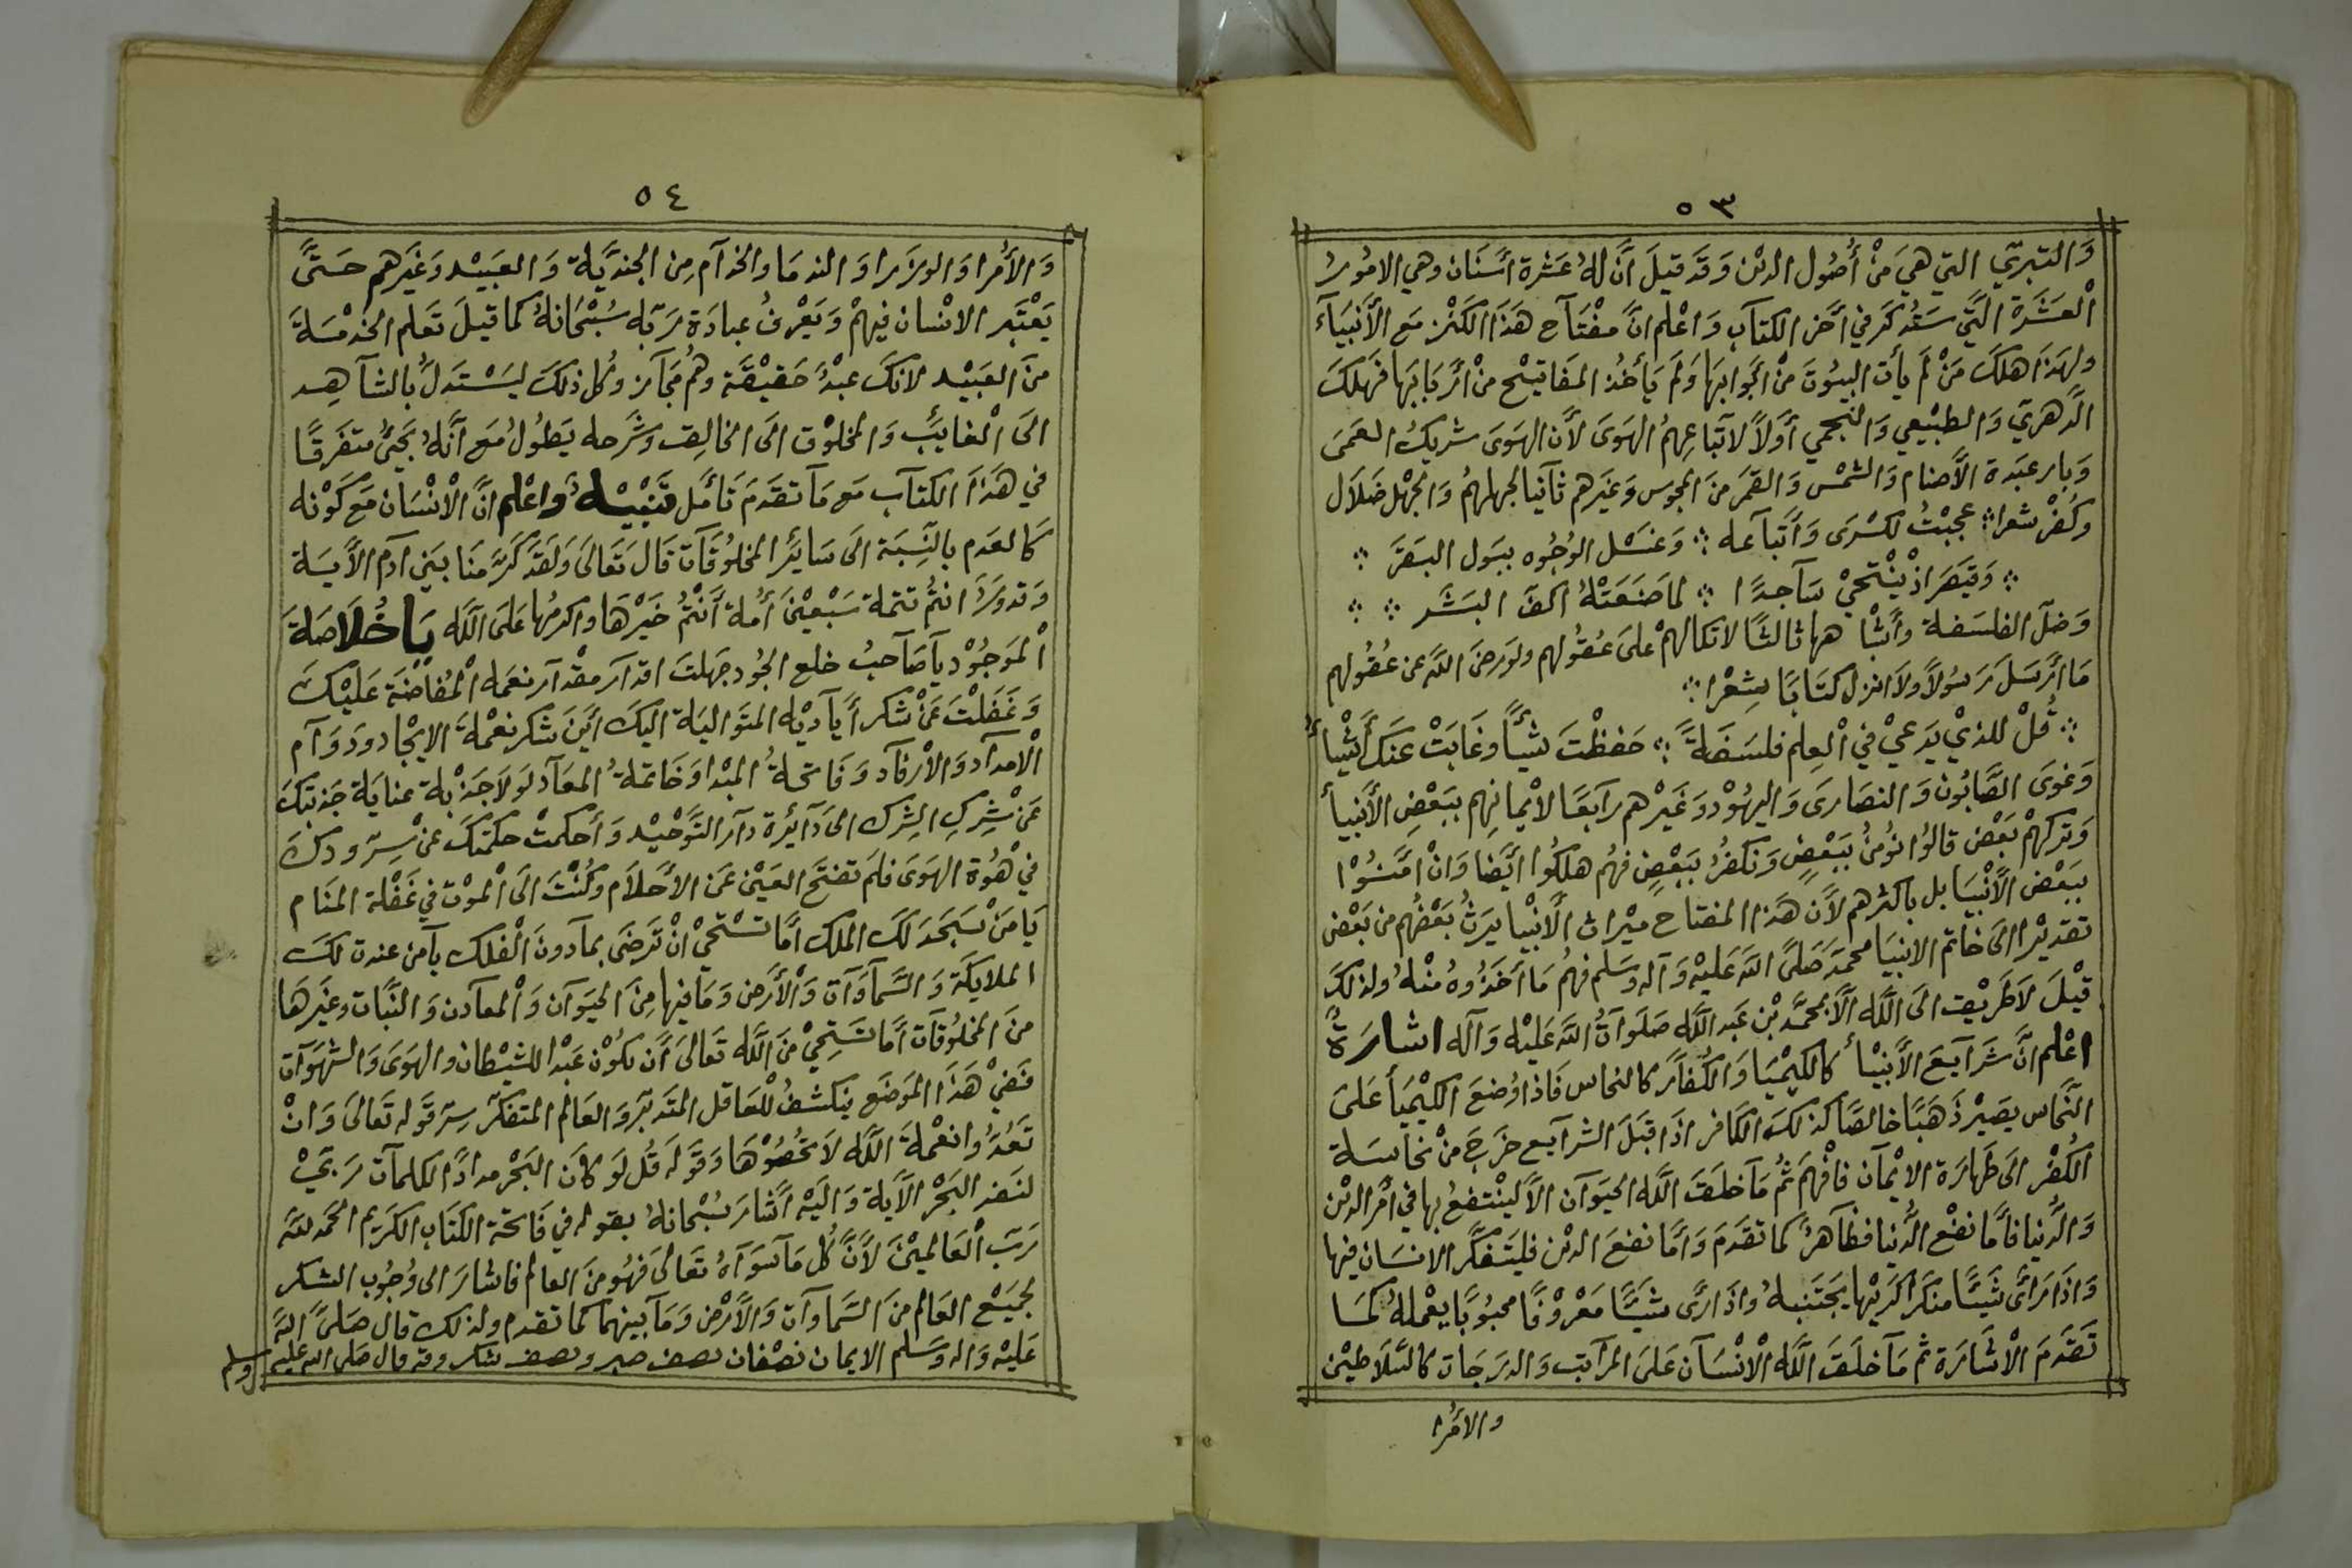 ٥٣
وَالتبرّي التي هيَ مِنْ أُصُول الدين وَقَد قيلَ انَّ لهُ عَشرة أسنَان وهي الامُور
الْعشَرَة الَّتي سَتُذكَر في آخر الكتَآب وَاعْلم انَّ مفْتَآح هَذَا الكَنْز مَع الأنبيَآء
ولهَذَا هلكَ مَنْ لَم يأت البيوُتَ منْ أبْوابهَا وَلم يَأخُذ المفَاتيْح منْ ارْبَابهَا فهَلكَ
الدَّهريّ وَالطبيْعي وَالنجمي أوَلاً لاتّباعِهمُ الهَوَى لأن الهَوَى شريكُ العمَى
وَبار عبَدة الأصنَام وَالشمْس وَالقمَر منَ المجوس وَغيَرهم ثآنيا لجهلهمُ وَالجهْل ضَلَال
وكُفرْ شعرا؞ عجبْتُ لكسْرَى وَأتبآعه ؞ وَغسْل الوُجُوه ببَول البَقرَ ؞
؞ وَقيصَر اذْ يْنتحيْ سَآجدًا ؞ لماصَنَعَتْهُ اكفّ البَشر ؞ ؞
وَضلّ الفلاسَفة وأشْبا هها ثالثًا لاتكالهمْ علىَ عُقُولهم ولوَرضىَ اللَّه عن عُقُولهم
مَاارْسَل رَسُولاً ولاَ انزل كتَابًا شِعْرا ؞
؞ قُلْ للذيْ يَدعيْ في الْعِلم فلسَفَةً ؞ حَفظْتَ شيْأً وغَابَتْ عنكَ أشْياءُ
وَغوَى الصَّابُون وَالنصَارىَ وَاليهُوْد وَغَيْرهم رَآبعًا لأيْمانِهم ببَعْضِ الأنبيأ
وَتركهمْ بَعْض قالُوا نُومنُ ببَعْضٍ وَنكفرُ ببَعْضٍ فهُم هلكُوا ايَّضا وَانْ امَنُوْا
ببَعْض الأنبْيَا بل باكثرهم لأن هَذا المفتاح ميْراث الأنبْيا يَرثُ بَعْضُهم من بَعْض
تقديْرا الىَ خَاتم الانبيَا محمّد صَلىَّ اللَّه عَليْه وَآله وسَلم فهُم مَااخَذُوهُ منْهُ ولذلكَ
قيْلَ لاَطَريْق الىَ اللَّه الاَّ بمحمَّد بْن عَبد اللَّه صَلَوآتُ اللَّه عَليْه وَآله اشارَةٌ
اعْلم انَّ شرَآيعَ الأنبْيأ كالكيْميَا وَالكُفاَّر كالنحاس فَاذا وُضعَ الكيْميَأ عَلىَ
النحَّاس يصيْر ذَهَبًا خالصًا كذلكَ الكَافر اذَا قبَلَ الشرآيع خَرجَ منْ نحاسَة
الكُفْر الى طَهارَة الايْمآن فافْهمَ ثُم مَآخلَقَ اللَّه الحيَوآن الاَّ لينْتفعُ بها في أمْر الدين
وَالدُّنيا فأمَّا نفْع الدُّنيا فظَآهرٌ كما تقدَمَ وَأمَّا نفعَ الدين فليَتفكّر الانسَان فيها
وَاذَا رَأىَ شيَئًا منكَرًا كريْها يَجتَنبهُ واذَا رأى شيَئًا مَعْرُوْفًا محبُوبًا يعْملهُ كمَا
تَقدَّمَ الْاشَارَة ثم مَآخلَقَ اللَّه الْانْسَآن علىَ المرَآتب وَالدرَجَات كالسَّلاَطيْن
والامُرا
٥٤
وَالأمُرا وَالوزرَا وَالندمَا والخدآم مِن الجنديَّة وَالعَبيْد وَغيَرهم حَتىَّ
يَعْتبَر الانسْان فيهمْ وَيَعْرفُ عبادَة رَبّه سُبْحَانهُ كما قيلَ تَعلم الخدْمَة
منَ العَبيْد لانكَ عبْدٌ حَقيْقَة وهُم مجَآز وكُل ذلكَ ليَسْتدَلُّ بالشآهِد
الىَ الْغايَبّ وَالمخلوْق الىَ الخالِق وَشرحه يَطُولُ مَع أنَّهُ يجَئُ متفَرقًا
في هَذَا الكتَآب مَع مَآتقدَمَ تَأمَّل تَنْبيْهٌ واعْلم انَّ الْانْسَان مَع كَوْنه
كَالعدَم بالنّسبَة الىَ سَايَر المخلوُقَآت قَالَ تَعَالىَ وَلقَد كَرَّمنَا بَنيَ آدم الأيَة
وَقدوردَ انتُم تتمة سَبْعيْنَ أمُة أنْتُم خَيْرهَا واكرمُها عَلىَ اللَّه يَاخُلاَصَة
الْموَجُوْد يآصَآحبُ خلع الجُود جَهلتَ اقدَآر مقْدآر نعَمه الْمُفاضَة عَليْكَ
وَغفلْتَ عَنْ شكر أيَآديْه المتوَاليَة اليكَ أيَن شكر نعْمة الايْجَاد ودوَآم
الْامدآد وَالأرْفآد وَفَاتحةُ المبْدا وَخَاتمةُ المعَآد لوَلاَ جَذْبة عنايَة جَذبتكَ
عَنْ شِركِ الشِرك الىَ دَآئرة دَآر التَّوحْيْد وَأحكمتْ حكمَتكَ عنْ سِرّ ودكَ
فيْ هُوة الهَوَى فلَم تفتَح العَيْن عَن الأحَلاَم وكُنْتَ الىَ الْموْت في غَفْلة المنَام
يَا مَنْ سَجَدَ لكَ الملك أمَّا تسْتحيْ انْ تَرضَى بمآدونَ الْفلك يآمن عندت لكَ
الملايكَة وَالسَّمآوَآت وَالأرَض وَمَافيها مِنَ الحيَوآن وَالْمعآدن وَالنبَّات وغيرَهَا
منَ المخلُوقَآت أمَّا تسَتحيْ منَ اللَّه تَعالىَ أنَ تكُوْن عَبْدا للشيْطان والهَوىَ وَالشهَوآت
فَفيْ هَذا الموَضَع ينكشفُ للْعَاقل المتَدبّر وَالعَالم المتفكّر سِرّ قوَله تَعَالىَ وَانْ
تَعُدُّوا نعْمة اللَّه لاَتحْصُوْهَا وَقوَله قُل لوَ كاَنَ البَحْر مدادًا لكلماَت رَبيّ
لنَفد البَحْر الأيَة وَاليَه أشَار سُبْحانهُ بقوله في فَاتحَة الكتَاب الكَريم الحمَد للَّه
رَبّ الْعَالميْنَ لأنَّ كُل مَآسوَآهُ تَعَالىَ فهُو منَ العَالم فاشارَ الى وُجُوب الشكر
لجميَعْ العَالم منَ السَّمآوآت وَالأرْض وَمَآ بينهما كما تقدم ولذلك قال صَلىَّ اللَّه
عَليْه وَاله وَسَلم الايمان نصْفان نصف صبر ونصف شكر وقد قال صلى الله عليه وسلم